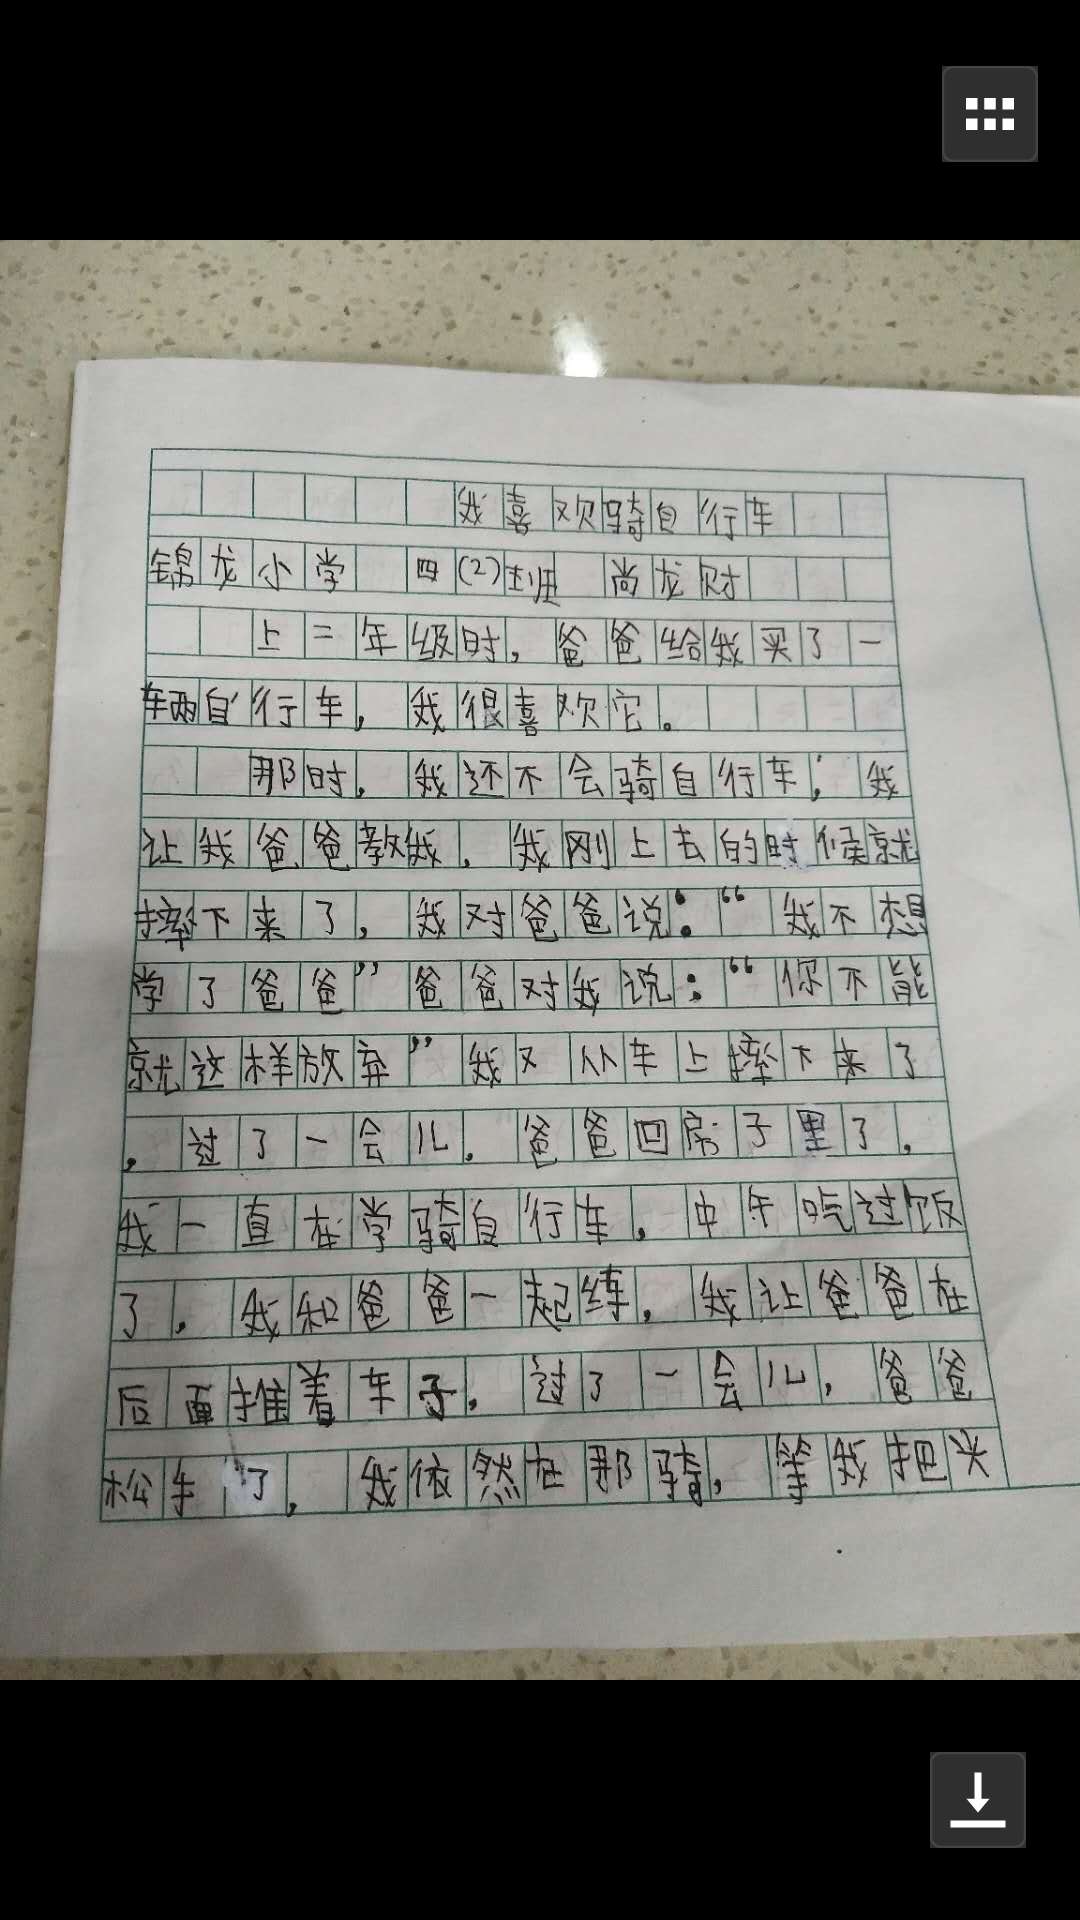 我喜欢骑自行车
锦龙小学 四(2)班 尚龙财
上二年级时，爸爸给我买了一
辆自行车，我很喜欢它。
那时，我还不会骑自行车；我
让我爸爸教我，我刚上去的时候就
摔下来了，我对爸爸说：“我不想
学了爸爸”爸爸对我说：“你不能
就这样放弃”我又从车上摔下来了
，过了一会儿，爸爸回房子里了，
我一直在学骑自行车，中午吃过饭
了，我和爸爸一起练，我让爸爸在
后面推着车子，过了一会儿，爸爸
松手了，我依然在那骑，等我把头